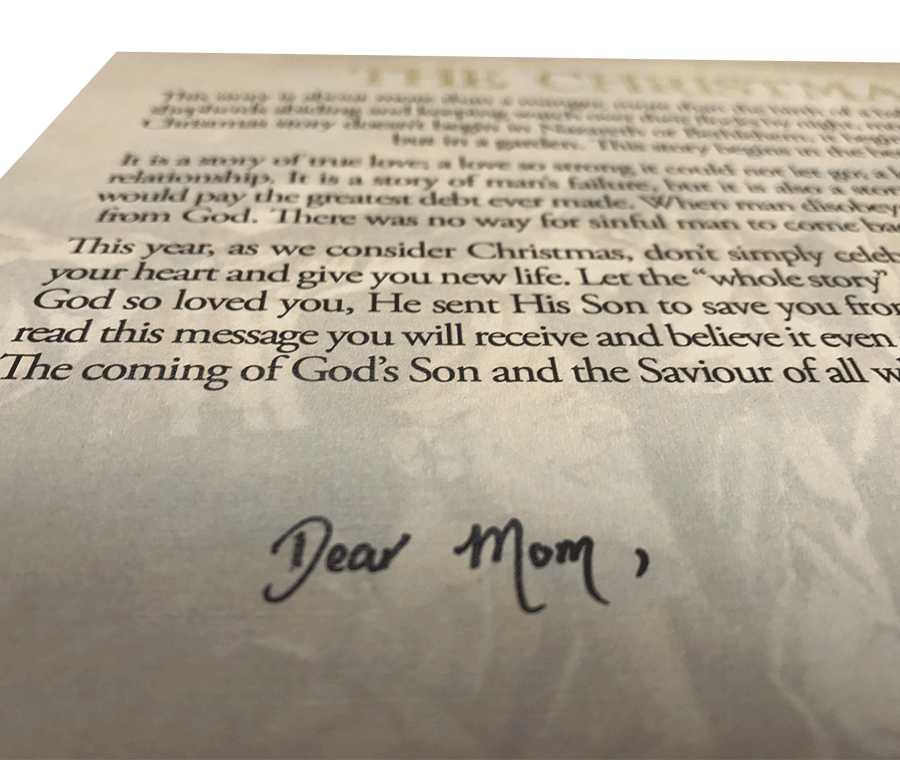 THE CHRISTMA
This story is about more than a manger, more than the birth of a
shepherds abiding and keeping watch over their flocks by night,
Christmas story doesn't begin in Nazareth or Bethlehem, it begin
but in a garden. This story begins in the
It is a story of true love; a love so strong it could not let go; a
relationship. It is a story of man's failure, but it is also a stor
would pay the greatest debt ever made. When man disobey
from God. There was no way for sinful man to come ba
This year, as we consider Christmas, don't simply celeb
your heart and give you new life. Let the “whole story”
God so loved you, He sent His Son to save you from
read this message you will receive and believe it even
The coming of God's Son and the Saviour of all w
Dear Mom,